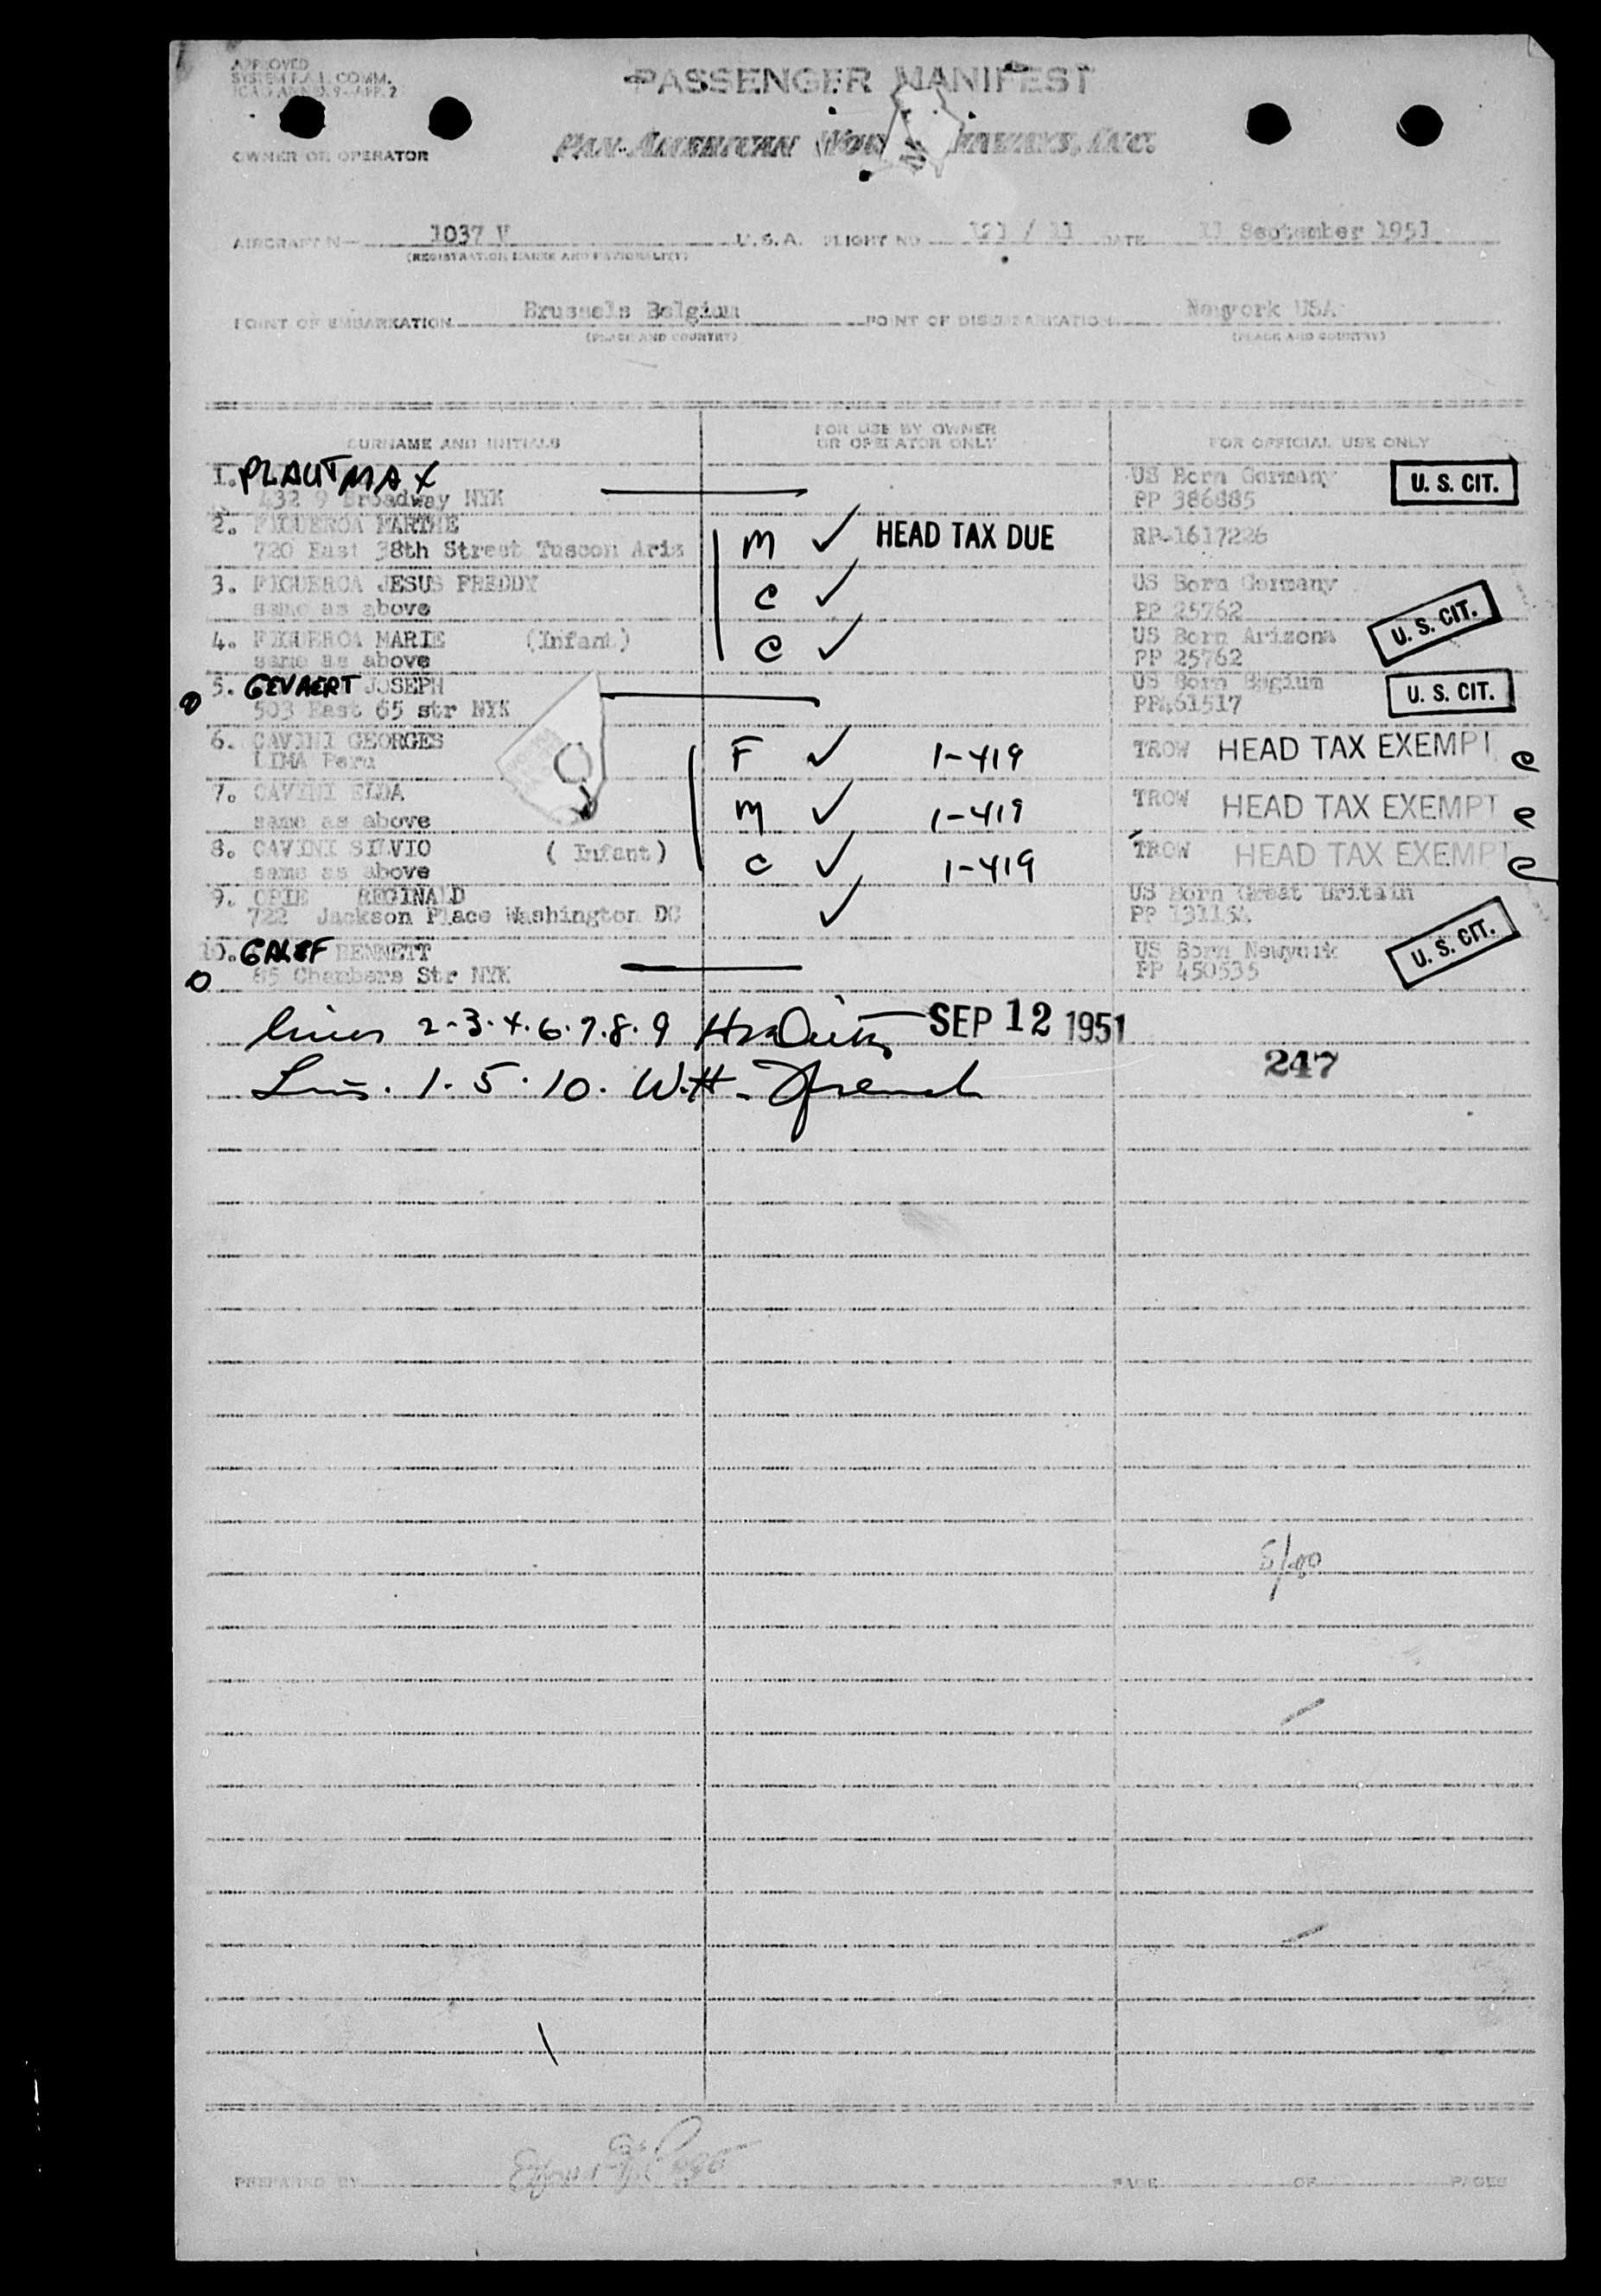 APPROVED
SYSTEM F.A.L. COMM.
ICAO ANNEX 9-APP. 2
PASSENGER MANIFEST
OWNER OR OPERATOR PAN AMERICAN WOR AIRWAYS, INC.
AIRCRAFT N— 1037 V U.S.A. FLIGHT NO 121 / 11 DATE 11 September 1951
(REGISTRATION MARKS AND NATIONALITY)
POINT OF EMBARKATION Brussels Belgium POINT OF DISEMBARKATION Newyork USA
(PLACE AND COUNTRY) (PLACE AND COUNTRY)
SURNAME AND INITIALS FOR USE BY OWNER OR OPERATOR ONLY FOR OFFICIAL USE ONLY
1. PLAUT MAX US Born Germany U. S. CIT.
432 9 Broadway NYK PP 386885
2. FIGUEROA MARTHE M ✓ HEAD TAX DUE RP-1617226
720 East 38th Street Tuscon Aris
3. FIGUEROA JESUS FREDDY C ✓ US Born Germany
same as above PP 25762 U. S. CIT.
4. FIGUEROA MARIE (Infant) C ✓ US Born Arizona
same as above PP 25762
5. GEVAERT JOSEPH US Born Begium U. S. CIT.
503 East 65 str NYK PP461517
6. CAVINI GEORGES F ✓ 1-419 TROW HEAD TAX EXEMPT e
LIMA Peru
7. CAVINI ELDA M ✓ 1-419 TROW HEAD TAX EXEMPT e
same as above
8. CAVINI SILVIO ( Infant ) C ✓ 1-419 TROW HEAD TAX EXEMPT e
same as above
9. OPIE REGINALD ✓ US Born Great Britain
722 Jackson Place Washington DC PP
10. GALEF BENNETT US Born Newyork U. S. CIT.
85 Chambers Str NYK PP 450535
lines 2-3.4.6.7.8.9 SEP 12 1951
247
Lins. 1.5.10. W.H. French
PREPARED BY PAGE OF PAGES